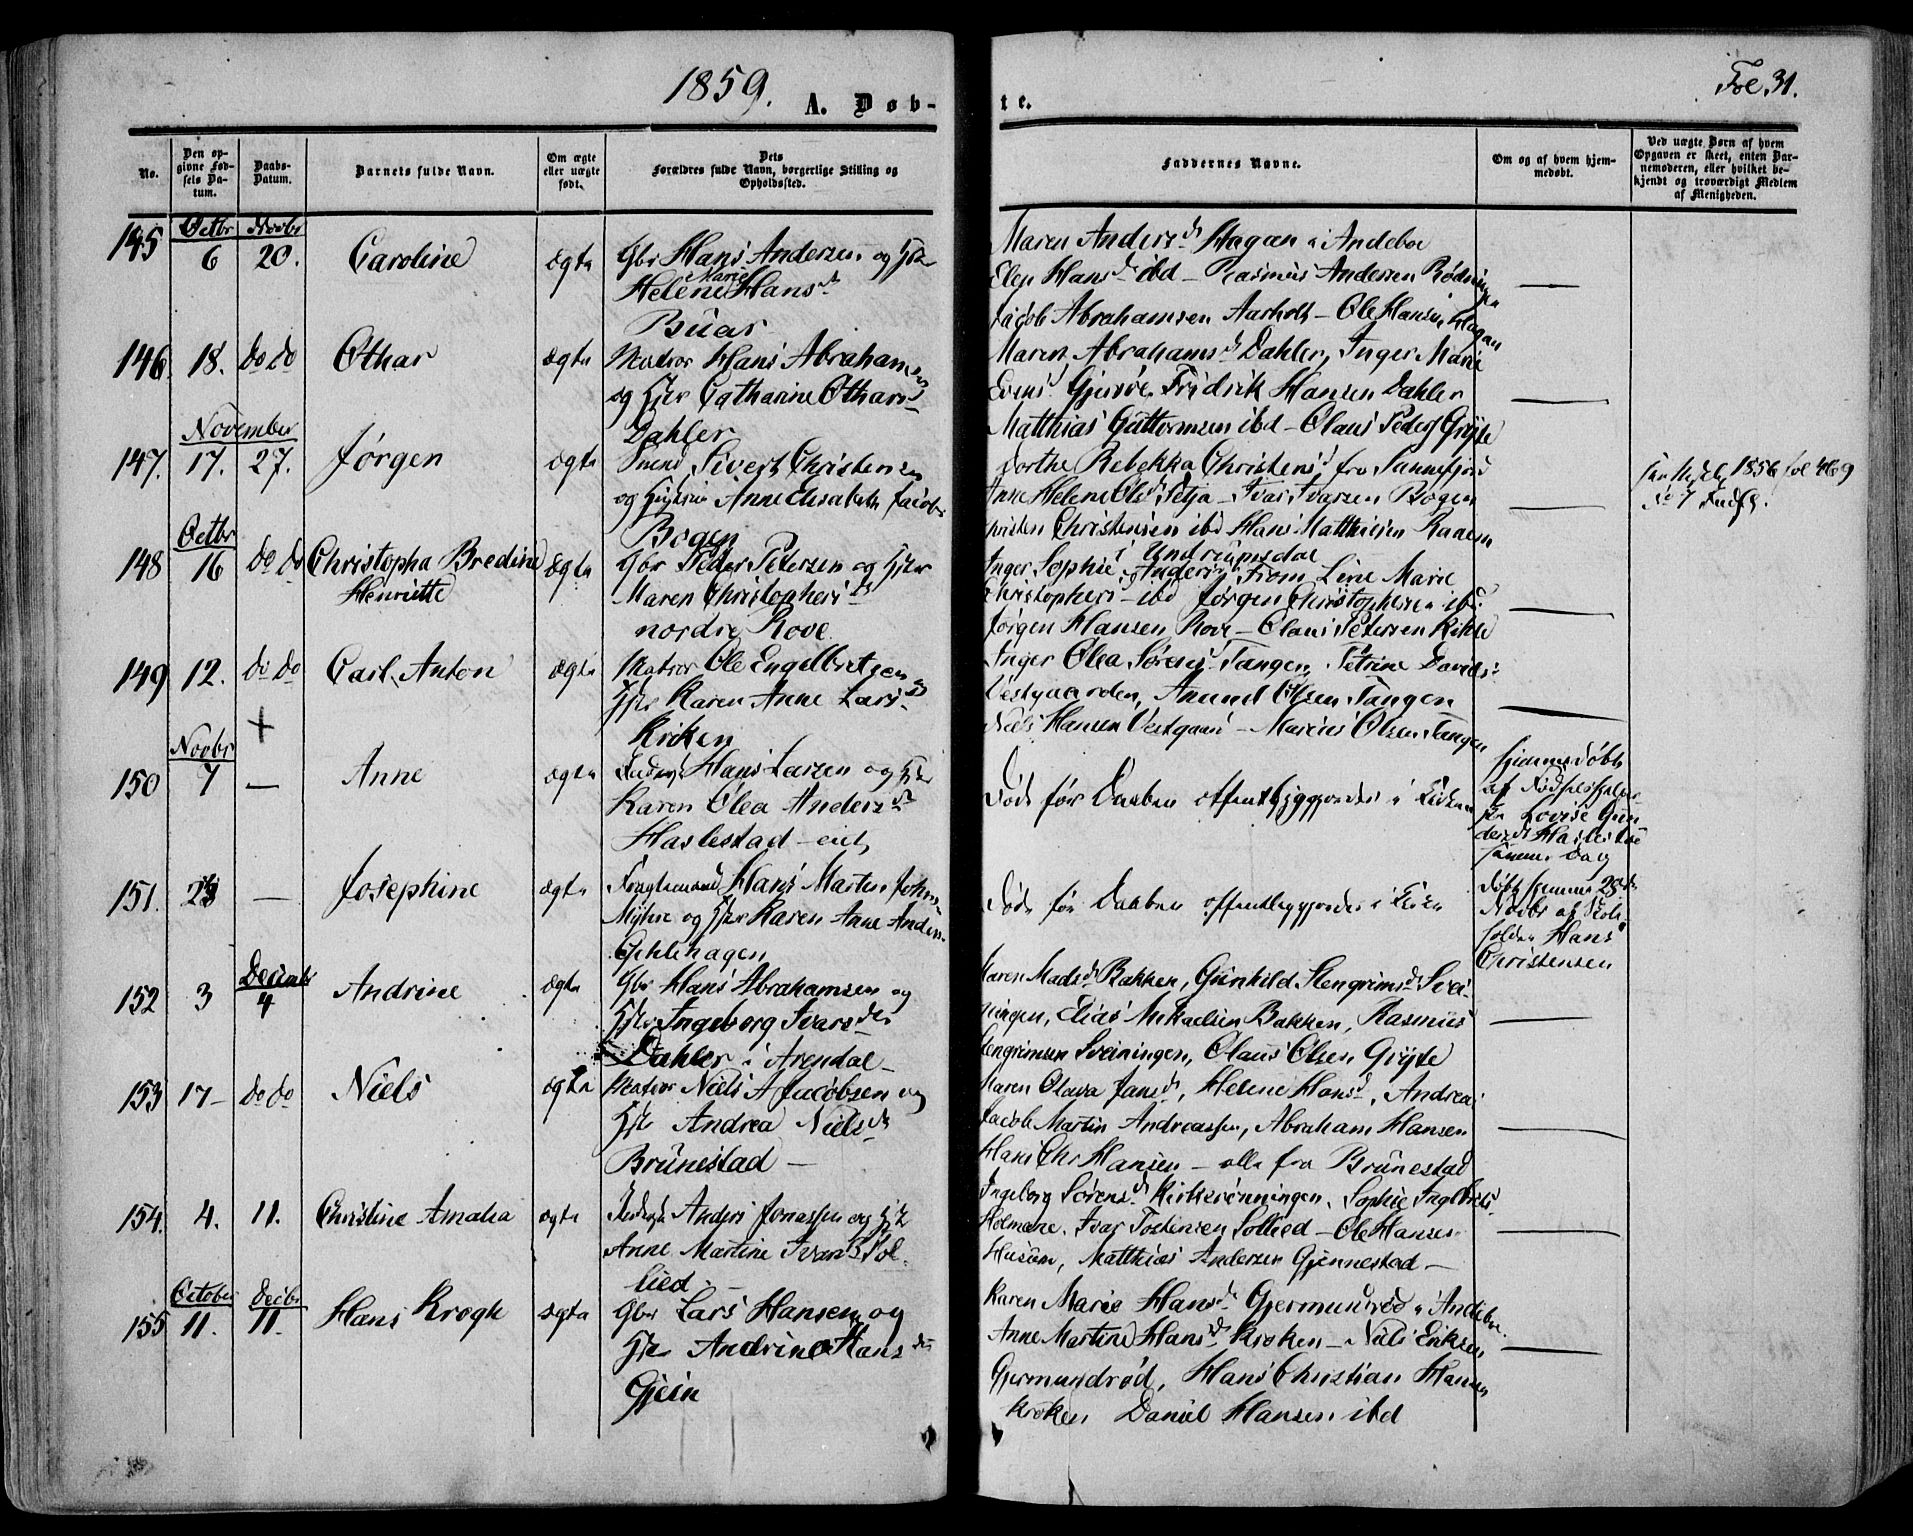 1859.
A. Døb-
te.
Fol. 31.
No.
Den op-
givne Fød-
sels Da-
tum.
Daabs-
Datum.
Barnets fulde Navn.
Om ægte
eller uægte
født.
Dets
Forældres fulde Navn, borgerlige Stilling og
Opholdssted.
Faddernes Navne.
Om og af hvem hjem-
medøbt.
Ved uægte Børn af hvem
Opgaven er skeet, enten Bar-
nemoderen, eller hvilket be-
kjendt og troværdigt Medlem
af Menigheden.
Octbr Novbr
145 6 20. Caroline ægte Gbr Hans Andersen og
Marie
Helene Hansd
Buar
Maren Andersd Hagan i Andeboe
Hansd ibd - Rasmus Andersen Rødningen
Jacob Abrahamsen Aarholt - Ole Hansen Hagan
146. 18. do do Othar ægte Matros Hans Abrahamsen
og Catharine Othars
Dahler
Maren Abrahamsd Dahler, Inger Marie
Evensd Gjersøe. Fredrik Hansen Dahler
Matthias Guttormsen ibd - Olaus Peders Gryte
November
147. 17. 27. Jørgen ægte Sivert Christensen
og Anne Elisabeth Jacobs
Bogen
Dorthe Rebekka Christensd fra Sannefjord
Anne Helene Olsd - Ivar Ivarsen Bogen
Christen Christensen ibd Hans Matthisen Raaen
i Undrumsdal
1856 fol 469
Octbr
148 16 do do Christopha Bredine
Henriette
ægte Gbr Peder Petersen og
Maren Christophersd
nordre Rove
Inger Sophie Anders From Line Marie
Christophers - ibd Jørgen Christophersen ibd
Jørgen Hansen Rove - Olaus Petersen
149 12. do do Carl Anton ægte Matros Ole Engelbretsen og
Karen Anne Lars
Kroken
Inger Olea Sørens Tangen, Petrine Davids
Vestgaarden, Amund Olsen Tangen
Niels Hansen Vestgaard - Marius Olsen Tangen
Novbr
150 7 - Anne ægte Hans Larsen og
Karen Olea Andersd
Haslestad - eie
Død før Daaben offentliggjordes i Kirken
hjemmedøbt
af Fødselshjelper
Lovise Gun
dersd Haslestad
samme Dag
151. 23 - Josephine ægte Hans Martin Johns
Myhre og Karen Anne Anders
Gjeklehagen
Død før Daaben offentliggjordes i Kirken
Døbt hjemme
Novbr af Skole
holder Hans
Christensen
Decembr
152 3 4 Andrine ægte Gbr Hans Abrahamsen og
Ingeborg Ivarsd
Dahler i Arendal -
Maren Madsd Bakken, Gunhild Stengrimsd Svei-
ningen, Elias Mikaelsen Bakken, Rasmus
Stengrimsen Sveiningen, Olaus Olsen Gryte
153 17 - do do Niels ægte Matros Niels A Jacobsen og
Andrea Nielsd
Brunestad -
Maren Olava Jansd, Helene Hansd, Andreas
Jacob Martin Andreassen, Abraham Hansen
Hans Chr Hansen - alle fra Brunestad
154. 4. 11. Christine Amalia ægte Anders Jonassen og
Anne Martine Ivars Sol-
lied -
Ingeborg Sørensd Kirkerønningen, Sophie
Holmene, Ivar Tostensen Sollied - Ole Hansen
Husum, Matthias Andersen Gjennestad -
October Decbr
155 11. 11. Hans Krogh ægte Gbr Lars Hansen og
Andrine Hansd
Gjein
Karen Marie Hansd Gjermundrød i Andeboe
Anne Martine Hansd Kroken - Niels Eriksen
Gjermundrød, Hans Christian Hansen
Kroken Daniel Hansen ibd